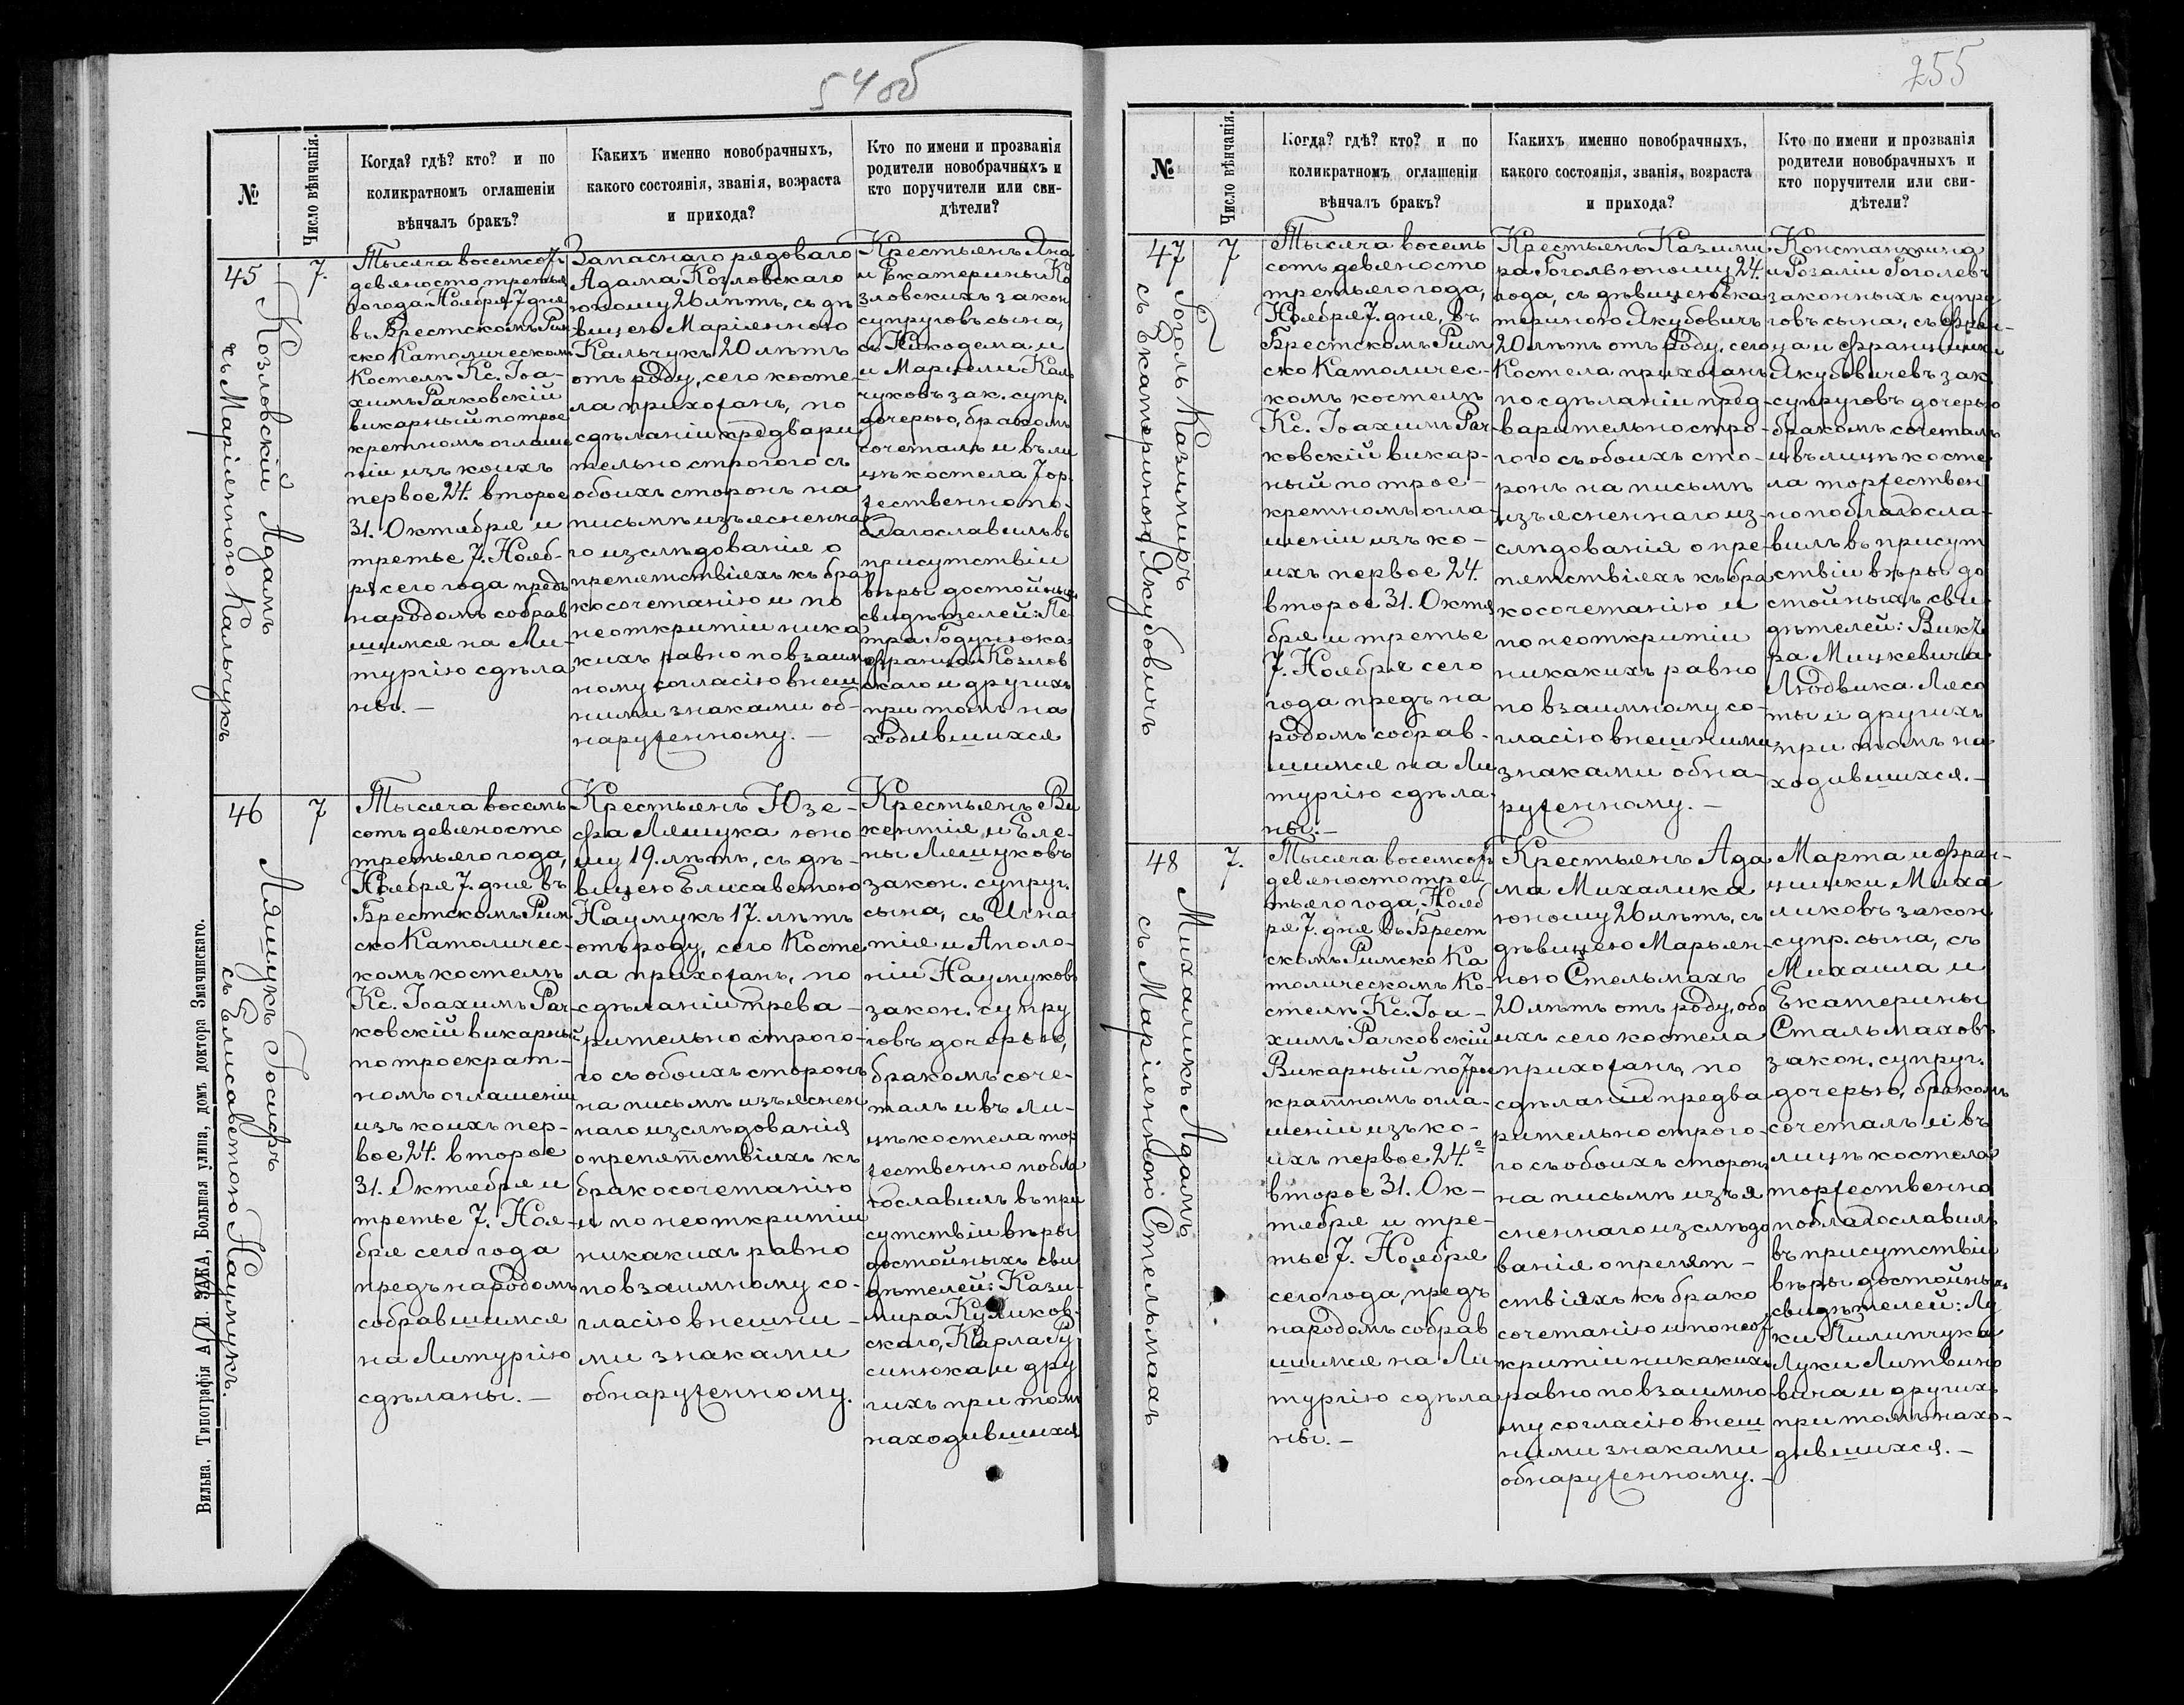 54 об
№
Число вѣнчанія.
Когда? гдѣ? кто? и по
коликратномъ оглашеніи
вѣнчалъ бракъ?
Какихъ именно новобрачныхъ,
какого состоянія, званія, возраста
и прихода?
Кто по имени и прозванія
родители новобрачныхъ и
кто поручители или сви-
дѣтели?
45
Козловскій Адамъ
съ Маріянною Кальчукъ
7.
Тысяча восемсотъ
девяносто третья
го года Ноября 7 дня
въ Брестскомъ Рим
ско Католическом
Костелѣ Кс. Іоа-
химъ Рачковскій
викарный по трое
кретномъ оглаше
ніи изъ коихъ
первое 24. второе
31. Октября и
третье 7. Нояб-
ря сего года предъ
народомъ собрав
шимся на Ли-
тургію сдѣла
ны. —
Запаснаго рядоваго
Адама Козловскаго
юношу 26 лѣтъ, съ дѣ
вицею Маріянною
Кальчукъ 20 лѣтъ
отъ роду, сего косте-
ла прихожанъ, по
сдѣланіи предвари
тельно строгого съ
обоихъ сторонъ на
письмѣ изъясненна
го изслѣдованія о
препятствіяхъ къ бра
косочетанію и по
неоткритіи ника
кихъ равно по взаим
ному согласію внеш
ними знаками об-
наруженному. —
Крестьянъ Яна
и Екатерины Ко
зловскихъ закон
супруговъ сына,
съ Никодема и
и Марцели Каль
чуковъ зак. супр.
дочерью, бракомъ
сочеталъ и въ ли
цѣ костела тор
жественно по-
благославилъ въ
присутствіи
вѣры достойныхъ
свидѣтелей: Пе-
тра Годунюка
Франца Козлов
скаго и другихъ
при томъ на
ходившихся
46
Ляшукъ Іосифъ
съ Елисаветою Наумукъ. —
7
Тысяча восемь
сотъ девяносто
третьяго года,
Ноября 7. дня въ
Брестскомъ Рим
ско Католичес-
комъ костелѣ
Кс. Іоахимъ Рач
ковскій викарный
по троекрат-
номъ оглашеніи
изъ коихъ пер-
вое 24. второе
31. Октября и
третье 7. Ноя-
бря сего года
предъ народомъ
собравшимся
на Литургію
сдѣланы. —
Крестьянъ Юзе-
фа Ляшука юно-
шу 19. лѣтъ, съ дѣ-
вицею Елисаветою
Наумукъ 17. лѣтъ
отъ роду, сего Косте
ла прихожанъ, по
сдѣланіи предва-
рительно строго-
го съ обоихъ сторонъ
на письмѣ изъяснен
наго изслѣдованія
о препятствіяхъ къ
бракосочетанію
и по неоткритіи
никакихъ равно
по взаимному со-
гласію внешни-
ми знаками
обнаруженному.
Крестьянъ Ви
кентія и Еле-
ны Ляшуковъ
закон. супруг.
сына, съ Игна
тія и Аполо-
ніи Наумуковъ
закон. супру
говъ дочерью,
бракомъ соче-
талъ и въ ли-
цѣ костела тор
жественно побла
гославилъ въ при
сутствіи вѣры
достойныхъ сви
дѣтелей: Кази-
мира Куликов-
скаго, Карла Ру
синюка и дру
гихъ при томъ
находившихся
Вильна. Типографія А. И. ЗАКА, Большая улица, домъ доктора Змачинскаго.
255
№
Число вѣнчанія.
Когда? гдѣ? кто? и по
коликратномъ оглашеніи
вѣнчалъ бракъ?
Какихъ именно новобрачныхъ,
какого состоянія, званія, возраста
и прихода?
Кто по имени и прозванія
родители новобрачныхъ и
кто поручители или сви-
дѣтели?
47
Гоголь Казимиръ
съ Екатериною Якубовичъ
7
Тысяча восемь
сотъ девяносто
третьяго года,
Ноября 7. дня, въ
Брестскомъ Рим
ско Католичес-
комъ костелѣ
Кс. Іоахимъ Рач-
ковскій викар-
ный по трое-
кретномъ огла-
шеніи изъ ко-
ихъ первое 24.
второе 31. Октя
бря и третье
7. Ноября сего
года предъ на
родомъ собрав-
шимся на Ли
тургію сдѣла
ны. —
Крестьянъ Казими
ра Гоголь юношу 24.
года, съ дѣвицею Ека
териною Якубовичъ
20 лѣтъ отъ роду, сего
Костела прихожанъ
по сдѣланіи пред-
варительно стро-
гого съ обоихъ сто-
ронъ на письмѣ
изъясненнаго из-
слѣдованія о пре
пятствіяхъ къ бра
косочетанію и
по неоткритіи
никакихъ равно
по взаимному со-
гласію внешними
знаками обна-
руженному. —
Константина
и Розаліи Гоголевъ
законныхъ супру
говъ сына, съ Фран-
ца и Францишки
Якубовичевъ зак.
супруговъ дочерью
бракомъ сочеталъ
и въ лицѣ косте
ла торжествен
но поблагосла-
вилъ въ присут
ствіи вѣры до
стойныхъ сви
дѣтелей: Викто
ра Мицкевича
Людвика Лясо
ты и другихъ
при томъ на
ходившихся. —
48
Михаликъ Адамъ
съ Маріянною Стельмахъ
7.
Тысяча восемсотъ
девяносто тре-
тьяго года, Нояб
ря 7. дня въ Брест
скомъ Римско Ка
толическомъ Ко-
стелѣ Кс. Іоа-
химъ Рачковскій
Викарный по трое
кратномъ огла-
шеніи изъ ко-
ихъ первое 24.е
второе 31. Ок-
тября и тре-
тье 7. Ноября
сего года, предъ
народомъ собрав
шимся на Ли
тургію сдѣла
ны. —
Крестьянъ Ада
ма Михалика
юношу 26 лѣтъ, съ
дѣвицею Марьян-
ною Стельмахъ
20 лѣтъ отъ роду, обо
ихъ сего костела
прихожанъ, по
сдѣланіи предва
рительно строго-
го съ обоихъ сторонъ
на письмѣ изъя
сненнаго изслѣдо
ванія о препят-
ствіяхъ къ брако
сочетанію и по неот
критіи никакихъ
равно по взаимно
му согласію внеш
ними знаками
обнаруженному. —
Марта и Фран-
цишки Миха
ликовъ закон
супр. сына, съ
Михаила и
Екатерины
Стальмаховъ
закон. супруг.
дочерью, бракомъ
сочеталъ и въ
лицѣ костела
торжественно
поблагославилъ
въ присутствіи
вѣры достойныхъ
свидѣтелей: Лу
ки Пилипчука
Луки Литвино
вича и другихъ
при томъ нахо-
дившихся. —